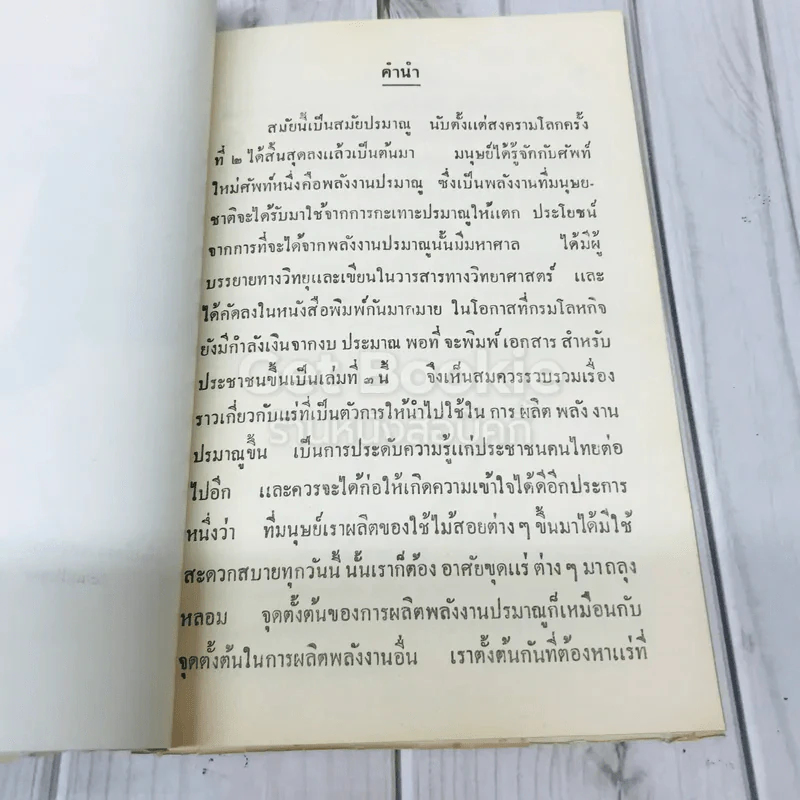 คำนำ
สมัยนี้เป็นสมัยปรมาณู นับตั้งแต่สงครามโลกครั้ง
ที่ ๒ ได้สิ้นสุดลงแล้วเป็นต้นมา มนุษย์ได้รู้จักกับศัพท์
ใหม่ศัพท์หนึ่งคือพลังงานปรมาณู ซึ่งเป็นพลังงานที่มนุษย-
ชาติจะได้รับมาใช้จากการกะเทาะปรมาณูให้แตก ประโยชน์
จากการที่จะได้จากพลังงานปรมาณูนั้นมีมหาศาล ได้มีผู้
บรรยายทางวิทยุและเขียนในวารสารทางวิทยาศาสตร์ และ
ได้คัดลงในหนังสือพิมพ์กันมากมาย ในโอกาสที่กรมโลหกิจ
ยังมีกำลังเงินจากงบ ประมาณ พอที่ จะพิมพ์ เอกสาร สำหรับ
ประชาชนขึ้นเป็นเล่มที่ ๓ นี้ จึงเห็นสมควรรวบรวมเรื่อง
ราวเกี่ยวกับแร่ที่เป็นตัวการให้นำไปใช้ใน การ ผลิต พลัง งาน
ปรมาณูขึ้น เป็นการประดับความรู้แก่ประชาชนคนไทยต่อ
ไปอีก และควรจะได้ก่อให้เกิดความเข้าใจได้ดีอีกประการ
หนึ่งว่า ที่มนุษย์เราผลิตของใช้ไม้สอยต่าง ๆ ขึ้นมาได้มีใช้
สะดวกสบายทุกวันนี้ นั้นเราก็ต้อง อาศัยขุดแร่ ต่าง ๆ มา ถลุง
หลอม จุดตั้งต้นของการผลิตพลังงานปรมาณูก็เหมือนกับ
จุดตั้งต้นในการผลิตพลังงานอื่น เราตั้งต้นกันที่ต้องหาแร่ที่
Got Bookie
ร้านหนังสือนุ๊ก